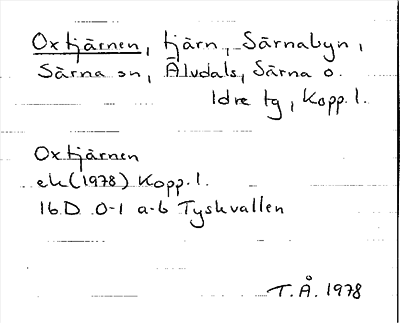 Oxtjärnen, tjärn, Särnabyn,
Särna sn, Älvdals, Särna o.
Idre tg, Kopp. l.
Oxtjärnen
ek (1978) Kopp. l.
16D 0-1 a-b Tyskvallen
T.Å. 1978